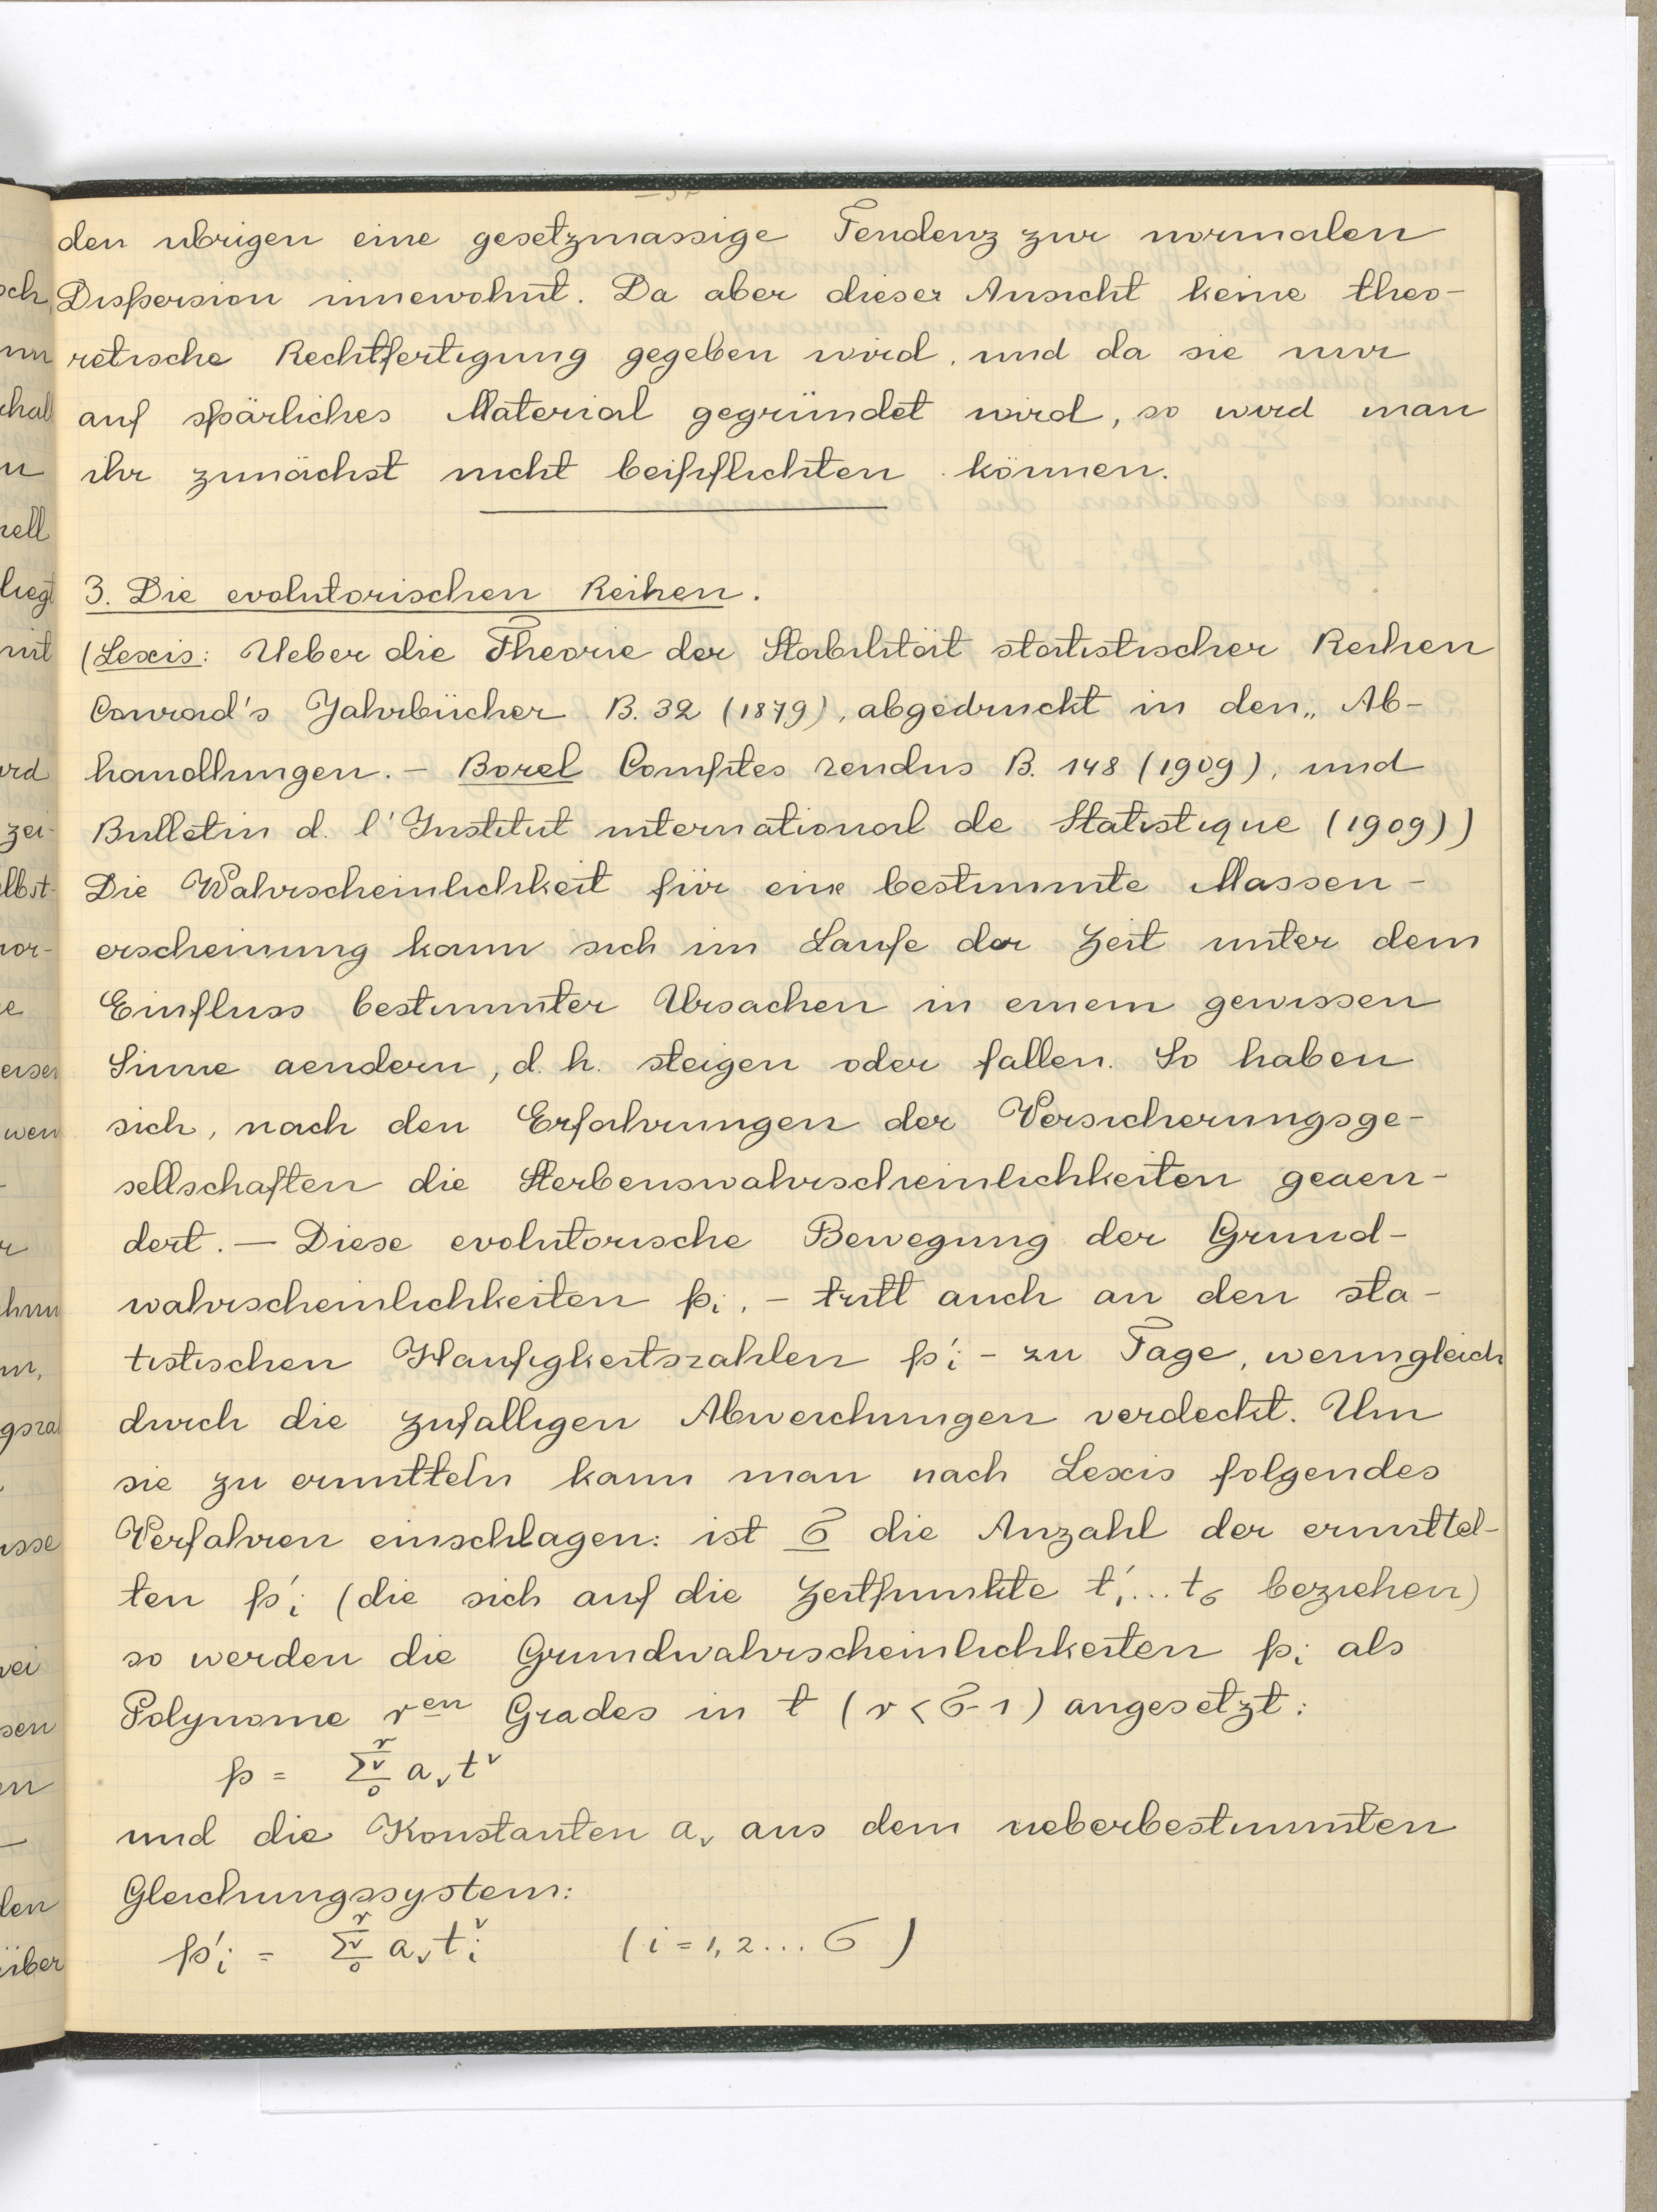 den ubrigen eine gesetzmassige Tendenz zur normalen
Dispersion innewohnt. Da aber dieser Ansicht keine theo-
retische Rechtfertigung gegeben wird, und da sie nur
auf spärliches Material gegründet wird, so wird man
ihr zunächst nicht beipflichten können.
3. Die evolutorischen Reihen.
(Lexis: Ueber die Theorie der Stabilität statistischer Reihen
Conrad's Jahrbücher B. 32 (1879), abgedruckt in den „ Ab-
handlungen. - Borel Comptes rendus B. 148 (1909), und
Bulletin d. l'Institut international de Statistique (1909))
Die Wahrscheinlichkeit für eine bestimmte Massen-
erscheinung kann sich im Laufe der Zeit unter dem
Einfluss bestimmter Ursachen in einem gewissen
Sinne aendern, d. h. steigen oder fallen. So haben
sich, nach den Erfahrungen der Versicherungsge-
sellschaften die Sterbenswahrscheinlichkeiten geaen-
dert. — Diese evolutorische Bewegung der Grund-
wahrscheinlichkeiten pᵢ, - tritt auch an den sta-
tistischen Haufigkeitszahlen p'ᵢ - zu Tage, wenngleich
durch die zufalligen Abweichungen verdeckt. Um
sie zu ermitteln kann man nach Lexis folgendes
Verfahren einschlagen: ist σ die Anzahl der ermittel-
ten p'ᵢ (die sich auf die Zeitpunkte t'₁...t_σ beziehen)
so werden die Grundwahrscheinlichkeiten pᵢ als
Polynome r^en Grades in t (r < σ-1) angesetzt:
p = Σ_0^r ν a_ν t^ν
und die Konstanten a_ν aus dem ueberbestimmten
Gleichungssystem:
p'ᵢ = Σ_0^r ν a_ν tᵢ^ν (i = 1, 2 ... σ)
sch,
nn
chal
n
rell
liegt
mit
ird
zei-
elbst-
nor-
e
wen
r
m,
gsza
usse
sen
en
len
über